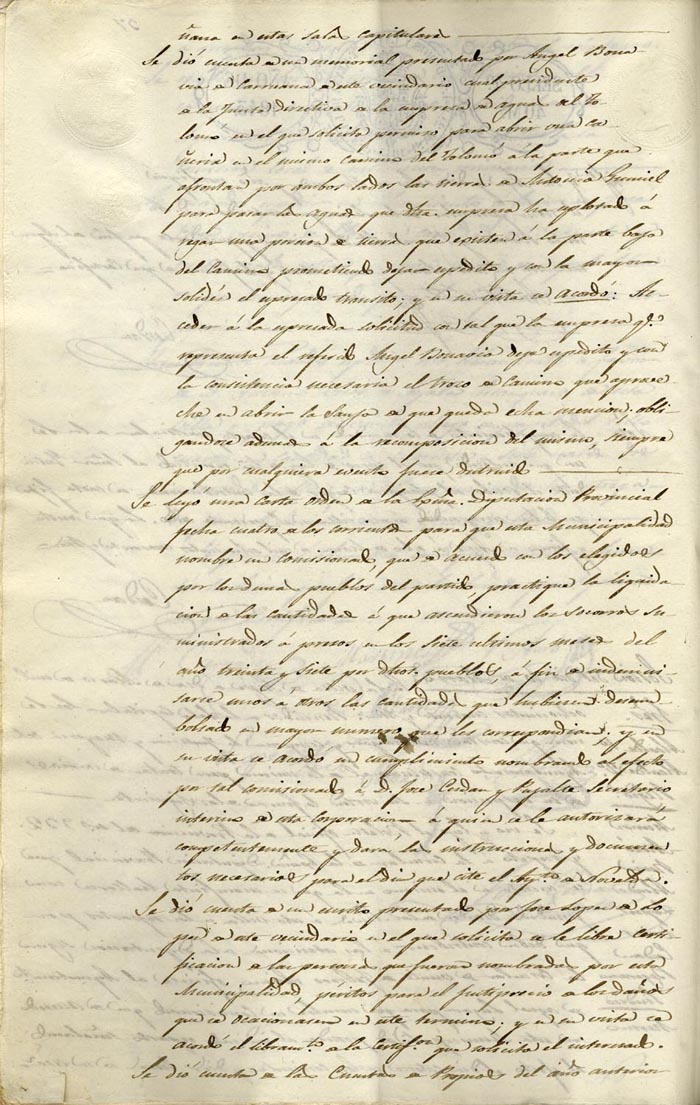 ñana en estas salas capitulares
Se dió cuenta de un memorial presentado por Angel Bona
via de Carmana de este vecindario cual presidente
de la Junta directiva de la empresa de aguas del To
lomó en el que solicita permiso para abrir una ca
ñeria en el mismo camino del Tolomó á la parte que
afrontan por ambos lados las tierras de Antonia Gumiel
para pasar las aguas que dha. empresa ha esplorado á
regar una porcion de tierra que existen á la parte baja
del Camino prometiendo dejar espedito y con la mayor
solidés el espresado transito; y en su vista se acordó: Ac
ceder á la espresada solicitud con tal que la empresa qe.
representa el referido Angel Bonavia deje espedito y con
la consistencia necesaria el trozo de Camino que aprove
che en abrir la Sanja de que queda echa mencion, obli
gandose ademas á la recomposicion del mismo, siempre
que por cualquiera evento fuese destruido
Se leyó una carta orden de la Exma. Diputacion Provincial
fecha cuatro de los corrientes para que esta Municipalidad
nombre un comisionado, que de acuerdo con los elegidos
por los demas pueblos del partido, practique la liquida
cion de las cantidades á que ascendieron los socorros su
ministrados á presos en los siete ultimos meses del
año treinta y siete por dhos. pueblos, á fin de indemni
sarse unos á otros las cantidades que hubieren desem
bolsado en mayor numero que les correspondian; y en
su vista se acordó su cumplimiento nombrando al efecto
por tal comisionado á D. Jose Cerdan y Pujalte Secretario
interino de esta corporacion á quien se le autorizará
competentemente y dará las instrucciones y documen
tos necesarios para el dia que cite el Ayto. de Novelda.
Se dió cuenta de un escrito presentado por Jose Lopez de Lo
pez de este vecindario en el que solicita se le libre certi
ficacion de las personas que fueron nombradas por esta
Municipalidad, peritos para el justiprecio de los daños
que se ocacionasen en este termino; y en su vista se
acordó el libramto. de la certifon. que solicita el interesado.
Se dió cuenta de las Cuentas de Propios del año anterior